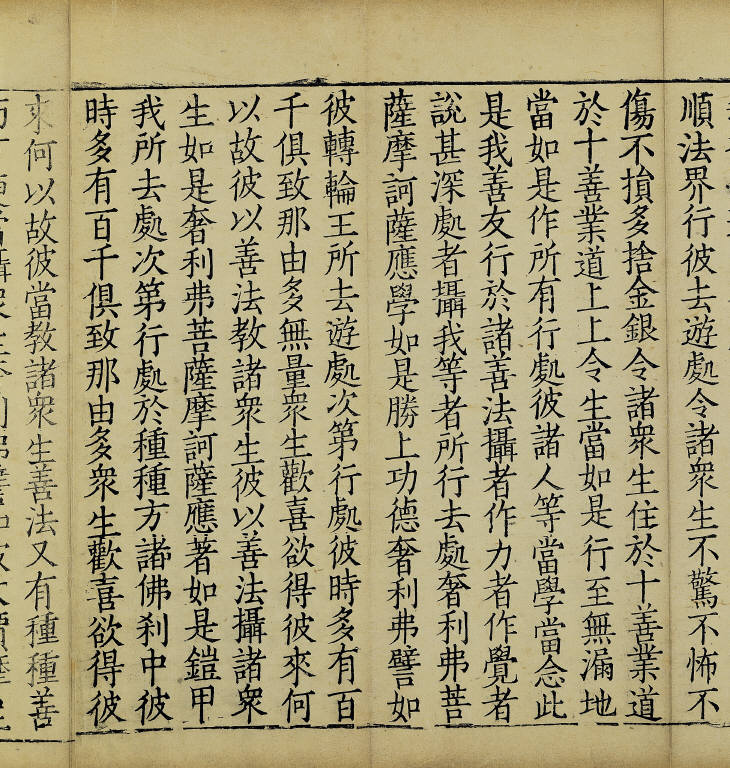 順法界行彼去遊處令諸衆生不驚不怖不
傷不損多捨金銀令諸衆生住於十善業道
於十善業道上上令生當如是行至無漏地
當如是作所有行處彼諸人等當學當念此
是我善友行於諸善法攝者作力者作覺者
說甚深處者攝我等者所行去處奢利弗菩
薩摩訶薩應學如是勝上功德奢利弗譬如
彼轉輪王所去遊處次第行處彼時多有百
千俱致那由多無量衆生歡喜欲得彼來何
以故彼以善法教諸衆生彼以善法攝諸衆
生如是奢利弗菩薩摩訶薩應著如是鎧甲
我所去處次第行處於種種方諸佛刹中彼
時多有百千俱致那由多衆生歡喜欲得彼
來何以故彼當教諸衆生善法又有種種善